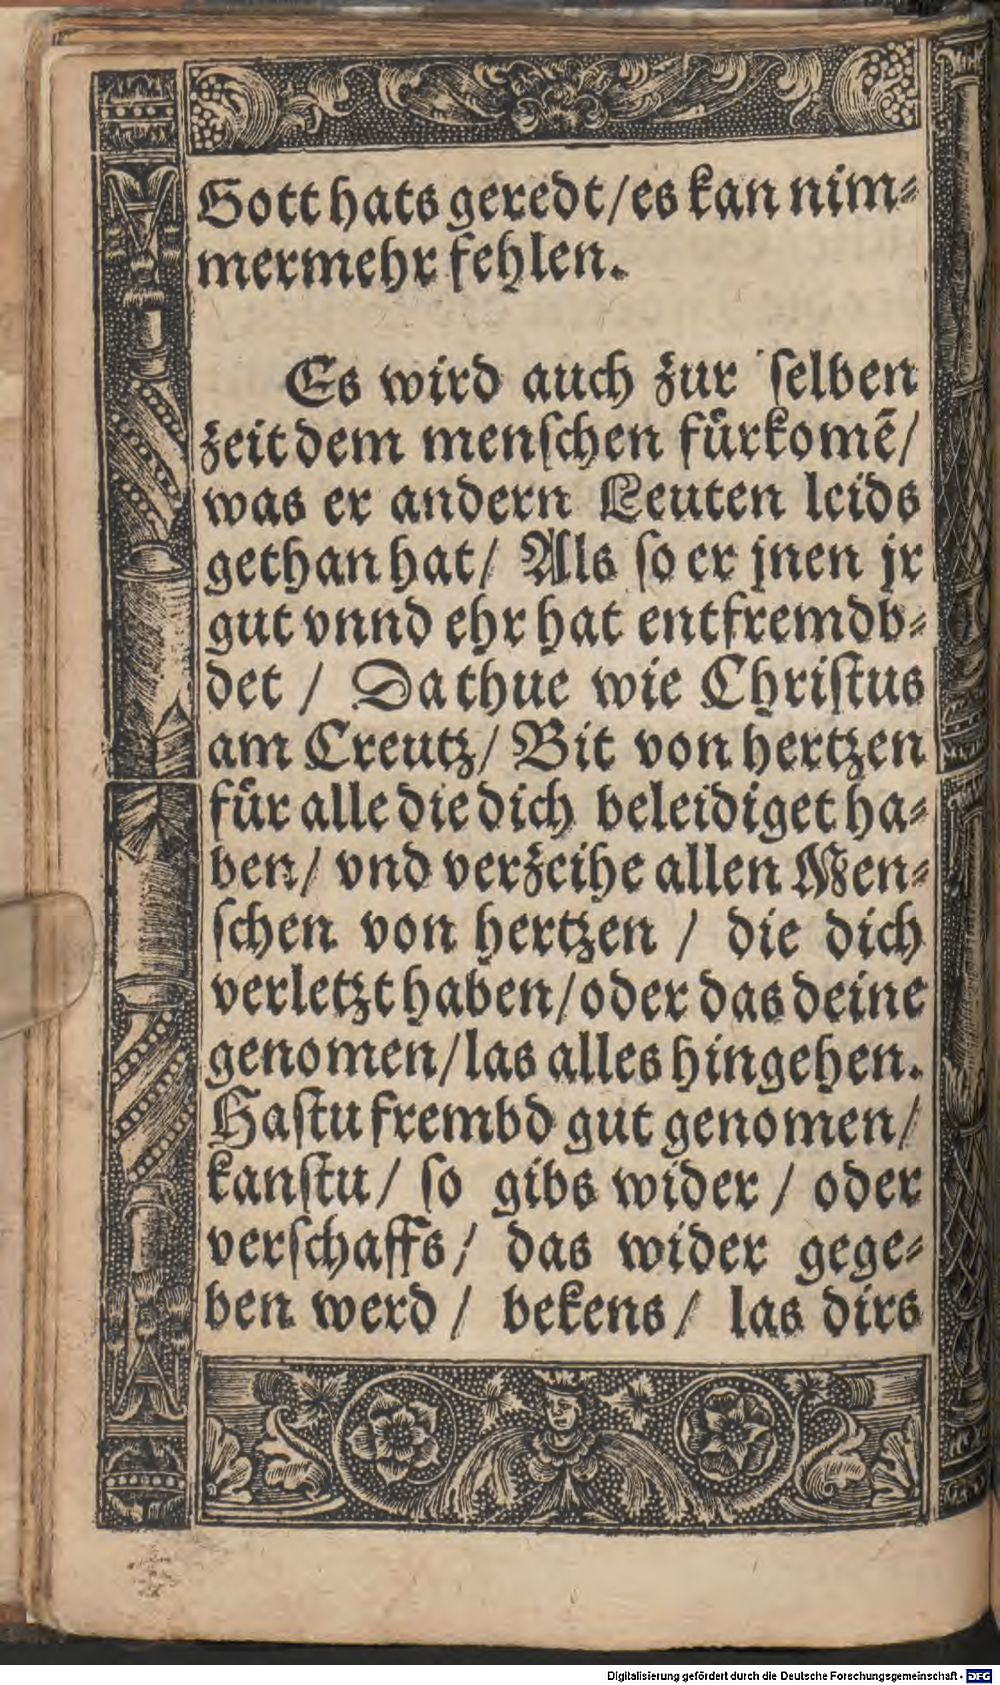 Gott hats geredt/es kan nim⸗
mermehr fehlen.
Es wird auch zur selben
zeit dem menschen fürkomē/
was er andern Leuten leids
gethan hat/ Als so er jnen jr
gut vnnd ehr hat entfremdb⸗
det / Da thue wie Christus
am Creutz/ Bit von hertzen
für alle die dich beleidiget ha⸗
ben/ vnd verzeihe allen Men⸗
schen von hertzen / die dich
verletzt haben/oder das deine
genomen/las alles hingehen.
Hastu frembd gut genomen/
kanstu/ so gibs wider / oder
verschaffs/ das wider gege⸗
ben werd / bekens/ las dirs
Digitalisierung gefördert durch die Deutsche Forschungsgemeinschaft - DFG